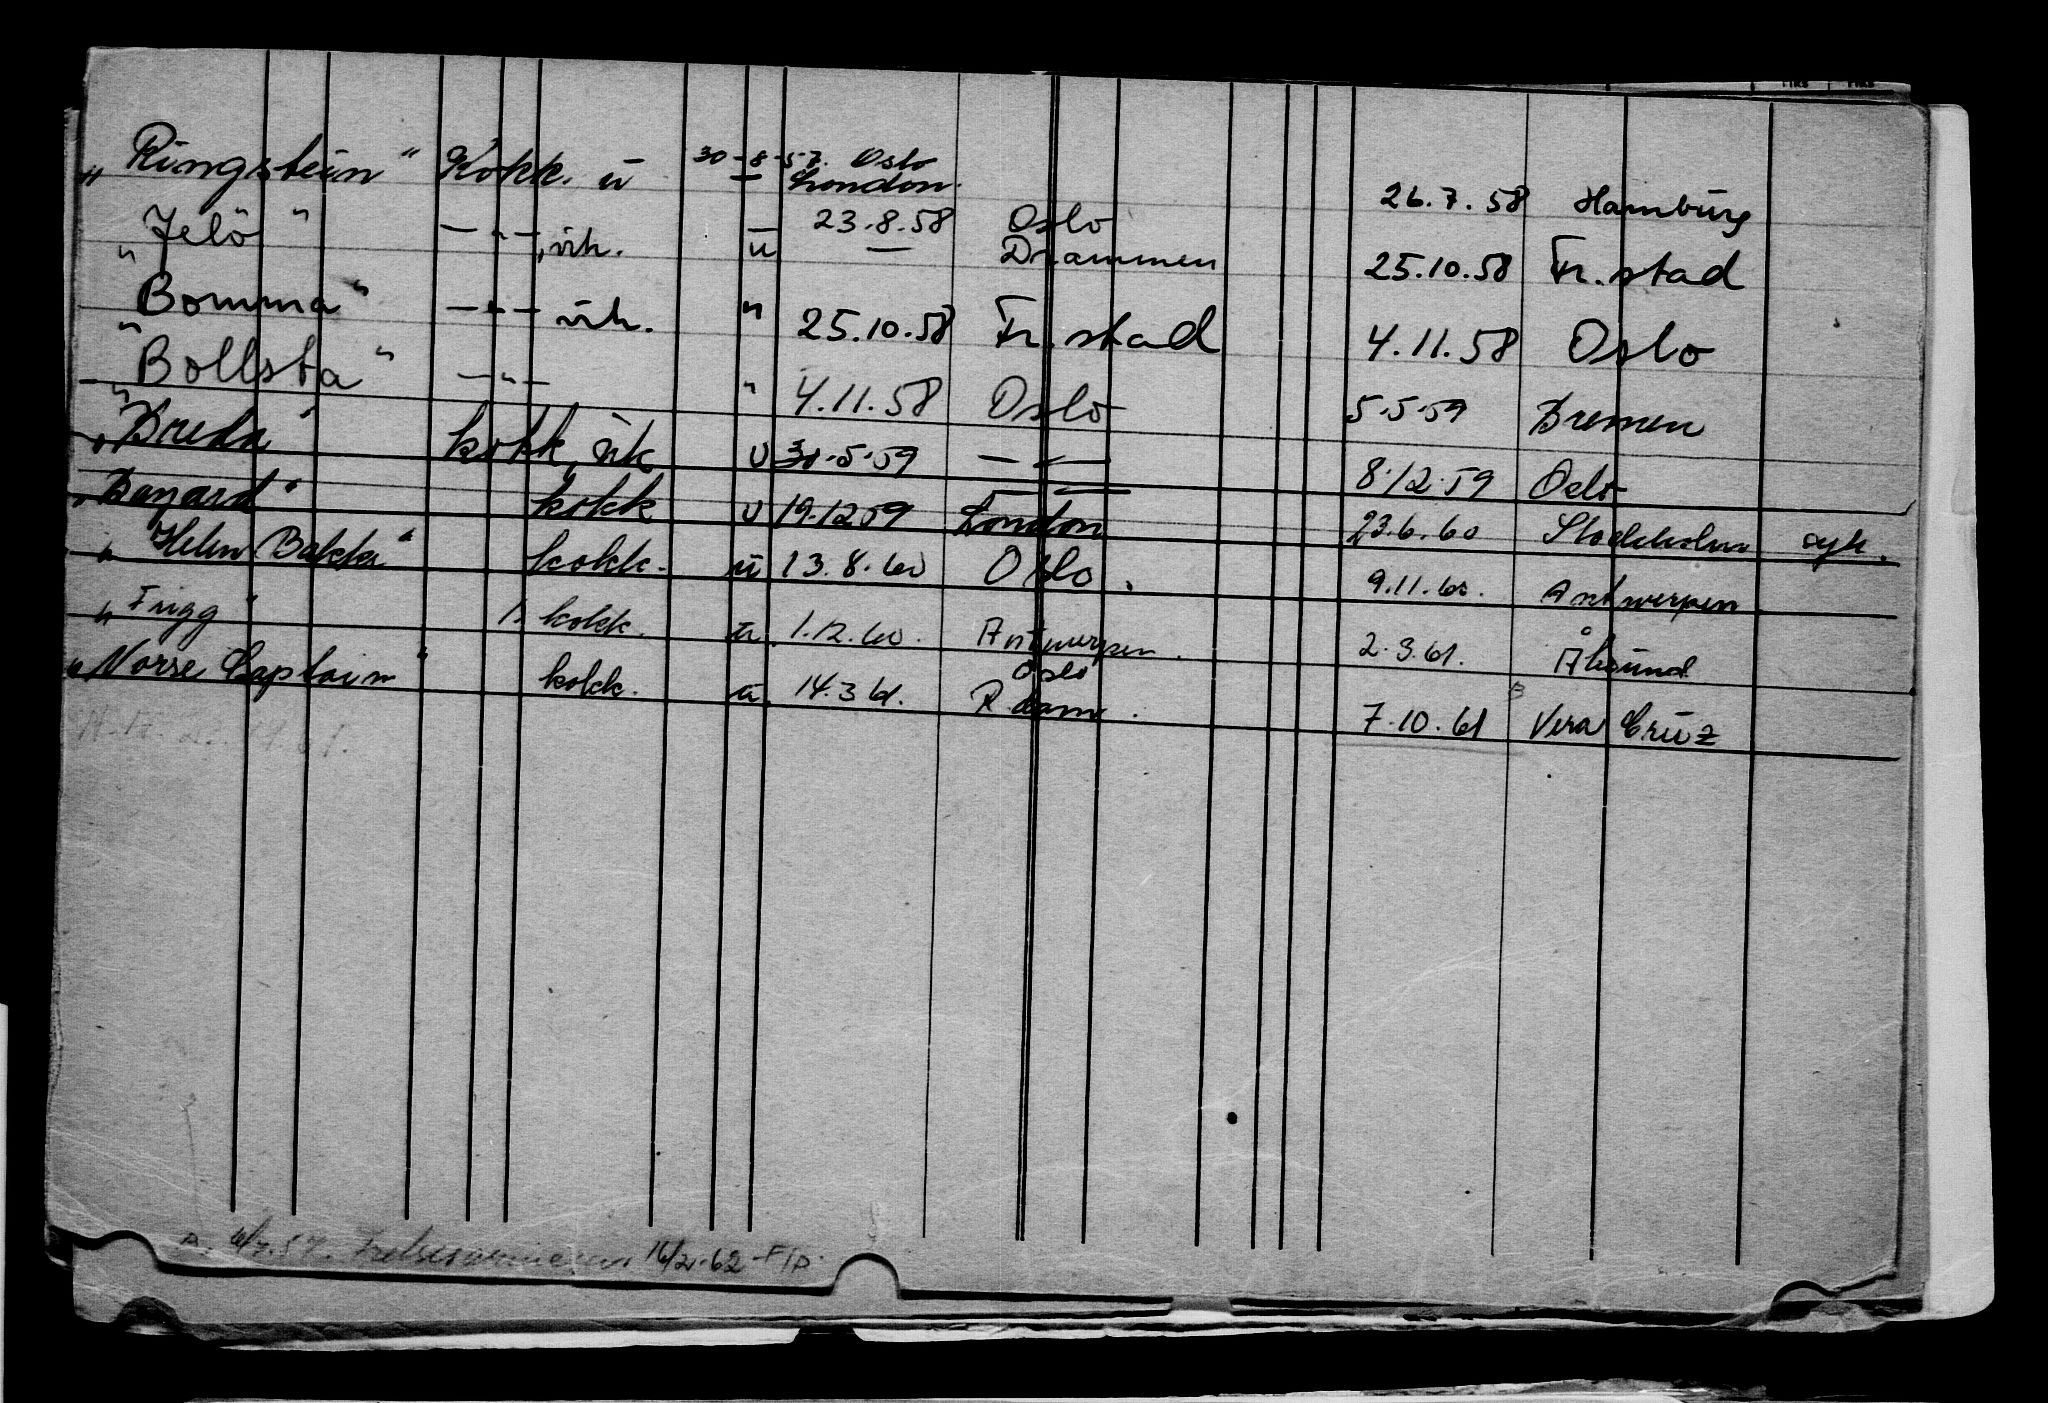 „Ringstein“ Kokk. u 30-8-57. Oslo 26.7.58 Hamburg
— London.
„Jelö“ — „ —, vik. u 23.8.58 Oslo 25.10.58 Fr.stad
— Drammen
„Bomma“ — „ — vik. " 25.10.58 Fr.stad 4.11.58 Oslo
„Bollsta“ — „ — " 4.11.58 Oslo 5.5.59 Bremen
„Breda“ kokk, vik u 30.5.59 — „ — 8.12.59 Oslo
„Bayard“ kokk u 19.12.59 London 23.6.60 Stockholm syk.
„Helen Bakke“ kokk. u 13.8.60 Oslo. 9.11.60. Antwerpen
„Frigg“ 1. kokk. u. 1.12.60. Antwerpen. 2.3.61. Ålesund
„Norse Captain“ kokk. u. 14.3.61. Oslo 7.10.61 Vera Cruz
R.dam.
16/2.62